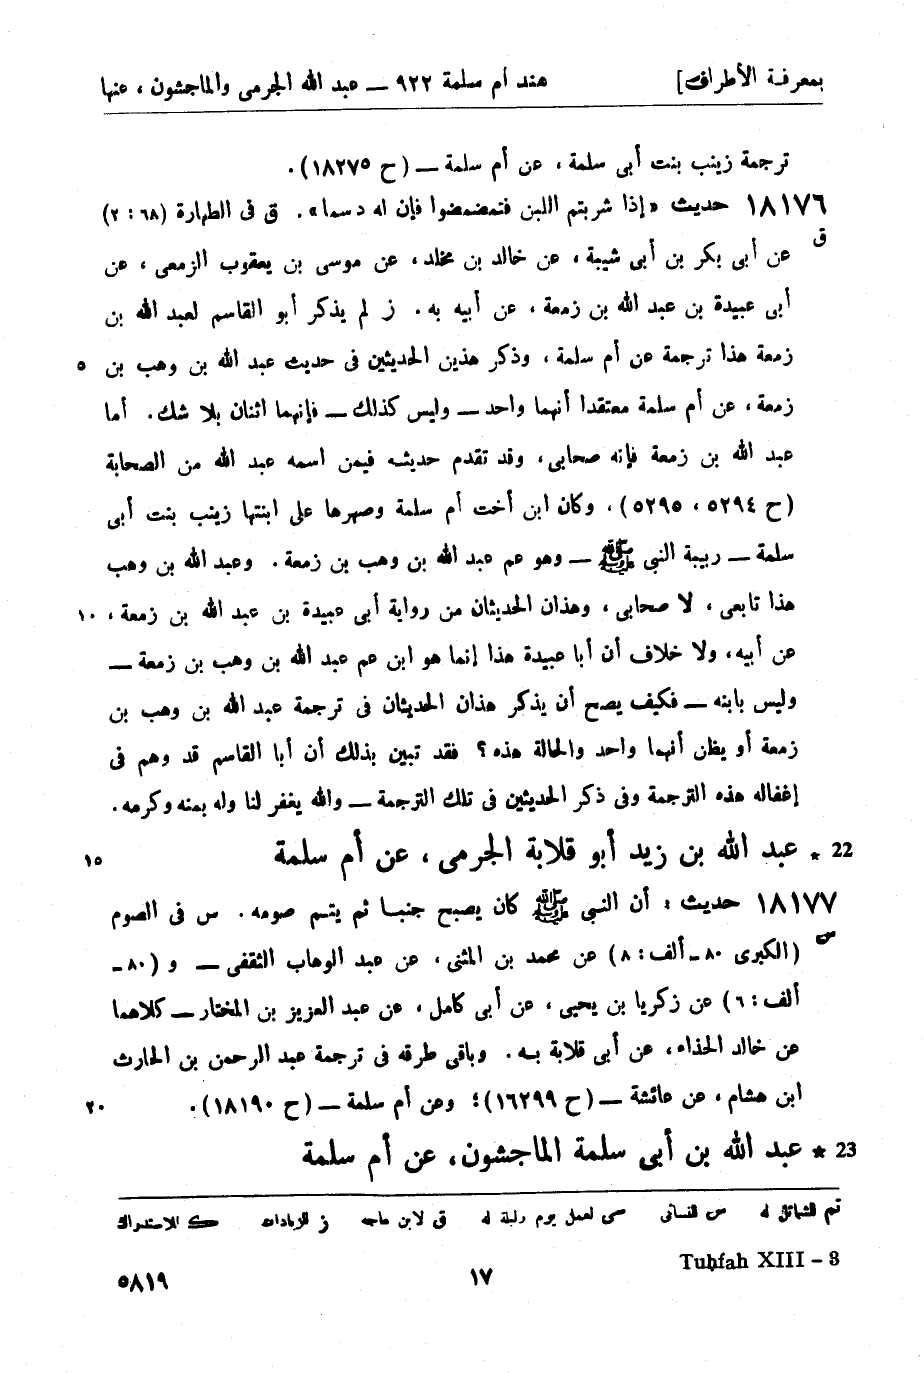 بمعرفة الأطراف] هند أم سلمة ٩٢٢ ــ عبد الله الجرمى والماجشون ، عنها
ترجمة زينب بنت أبى سلمة ، عن أم سلمة ــ (ح ١٨٢٧٥).
١٨١٧٦ حديث «إذا شربتم اللبن فتمضمضوا فإن له دسما». ق فى الطهارة (٦٨ : ٢)
ق عن أبى بكر بن أبى شيبة ، عن خالد بن مخلد ، عن موسى بن يعقوب الزمعى ، عن
أبى عبيدة بن عبد الله بن زمعة ، عن أبيه به . ز لم يذكر أبو القاسم لعبد الله بن
زمعة هذا ترجمة عن أم سلمة ، وذكر هذين الحديثين فى حديث عبد الله بن وهب بن ٥
زمعة ، عن أم سلمة معتقدا أنهما واحد ــ وليس كذلك ــ فإنهما اثنان بلا شك . أما
عبد الله بن زمعة فإنه صحابى ، وقد تقدم حديثه فيمن اسمه عبد الله من الصحابة
(ح ٥٢٩٤ ، ٥٢٩٥) ، وكان ابن أخت أم سلمة وصهرها على ابنتها زينب بنت أبى
سلمة ــ ربيبة النبى ﷺ ــ وهو عم عبد الله بن وهب بن زمعة . وعبد الله بن وهب
هذا تابعى ، لا صحابى ، وهذان الحديثان من رواية أبى عبيدة بن عبد الله بن زمعة ، ١٠
عن أبيه ، ولا خلاف أن أبا عبيدة هذا إنما هو ابن عم عبد الله بن وهب بن زمعة ــ
وليس بابنه ــ فكيف يصح أن يذكر هذان الحديثان فى ترجمة عبد الله بن وهب بن
زمعة أو يظن أنهما واحد والحالة هذه ؟ فقد تبين بذلك أن أبا القاسم قد وهم فى
إغفاله هذه الترجمة وفى ذكر الحديثين فى تلك الترجمة ــ والله يغفر لنا وله بمنه وكرمه .
22 * عبد الله بن زيد أبو قلابة الجرمى ، عن أم سلمة ١٥
١٨١٧٧ حديث : أن النبى ﷺ كان يصبح جنبا ثم يتم صومه . س فى الصوم
س (الكبرى ٨٠ ـ ألف : ٨) عن محمد بن المثنى ، عن عبد الوهاب الثقفى ــ و (٨٠ ـ
ألف : ٦) عن زكريا بن يحيى ، عن أبى كامل ، عن عبد العزيز بن المختار ــ كلاهما
عن خالد الحذاء ، عن أبى قلابة به . وباقى طرقه فى ترجمة عبد الرحمن بن الحارث
ابن هشام ، عن عائشة ــ (ح ١٦٢٩٩)؛ وعن أم سلمة ــ (ح ١٨١٩٠). ٢٠
23 * عبد الله بن أبى سلمة الماجشون ، عن أم سلمة
تم الشمائل له س للنسائى سى لعمل يوم وليلة له ق لابن ماجه ز للزيادات ك للاستدراك
Tuḥfah XIII – 3
١٧ ٥٨١٩